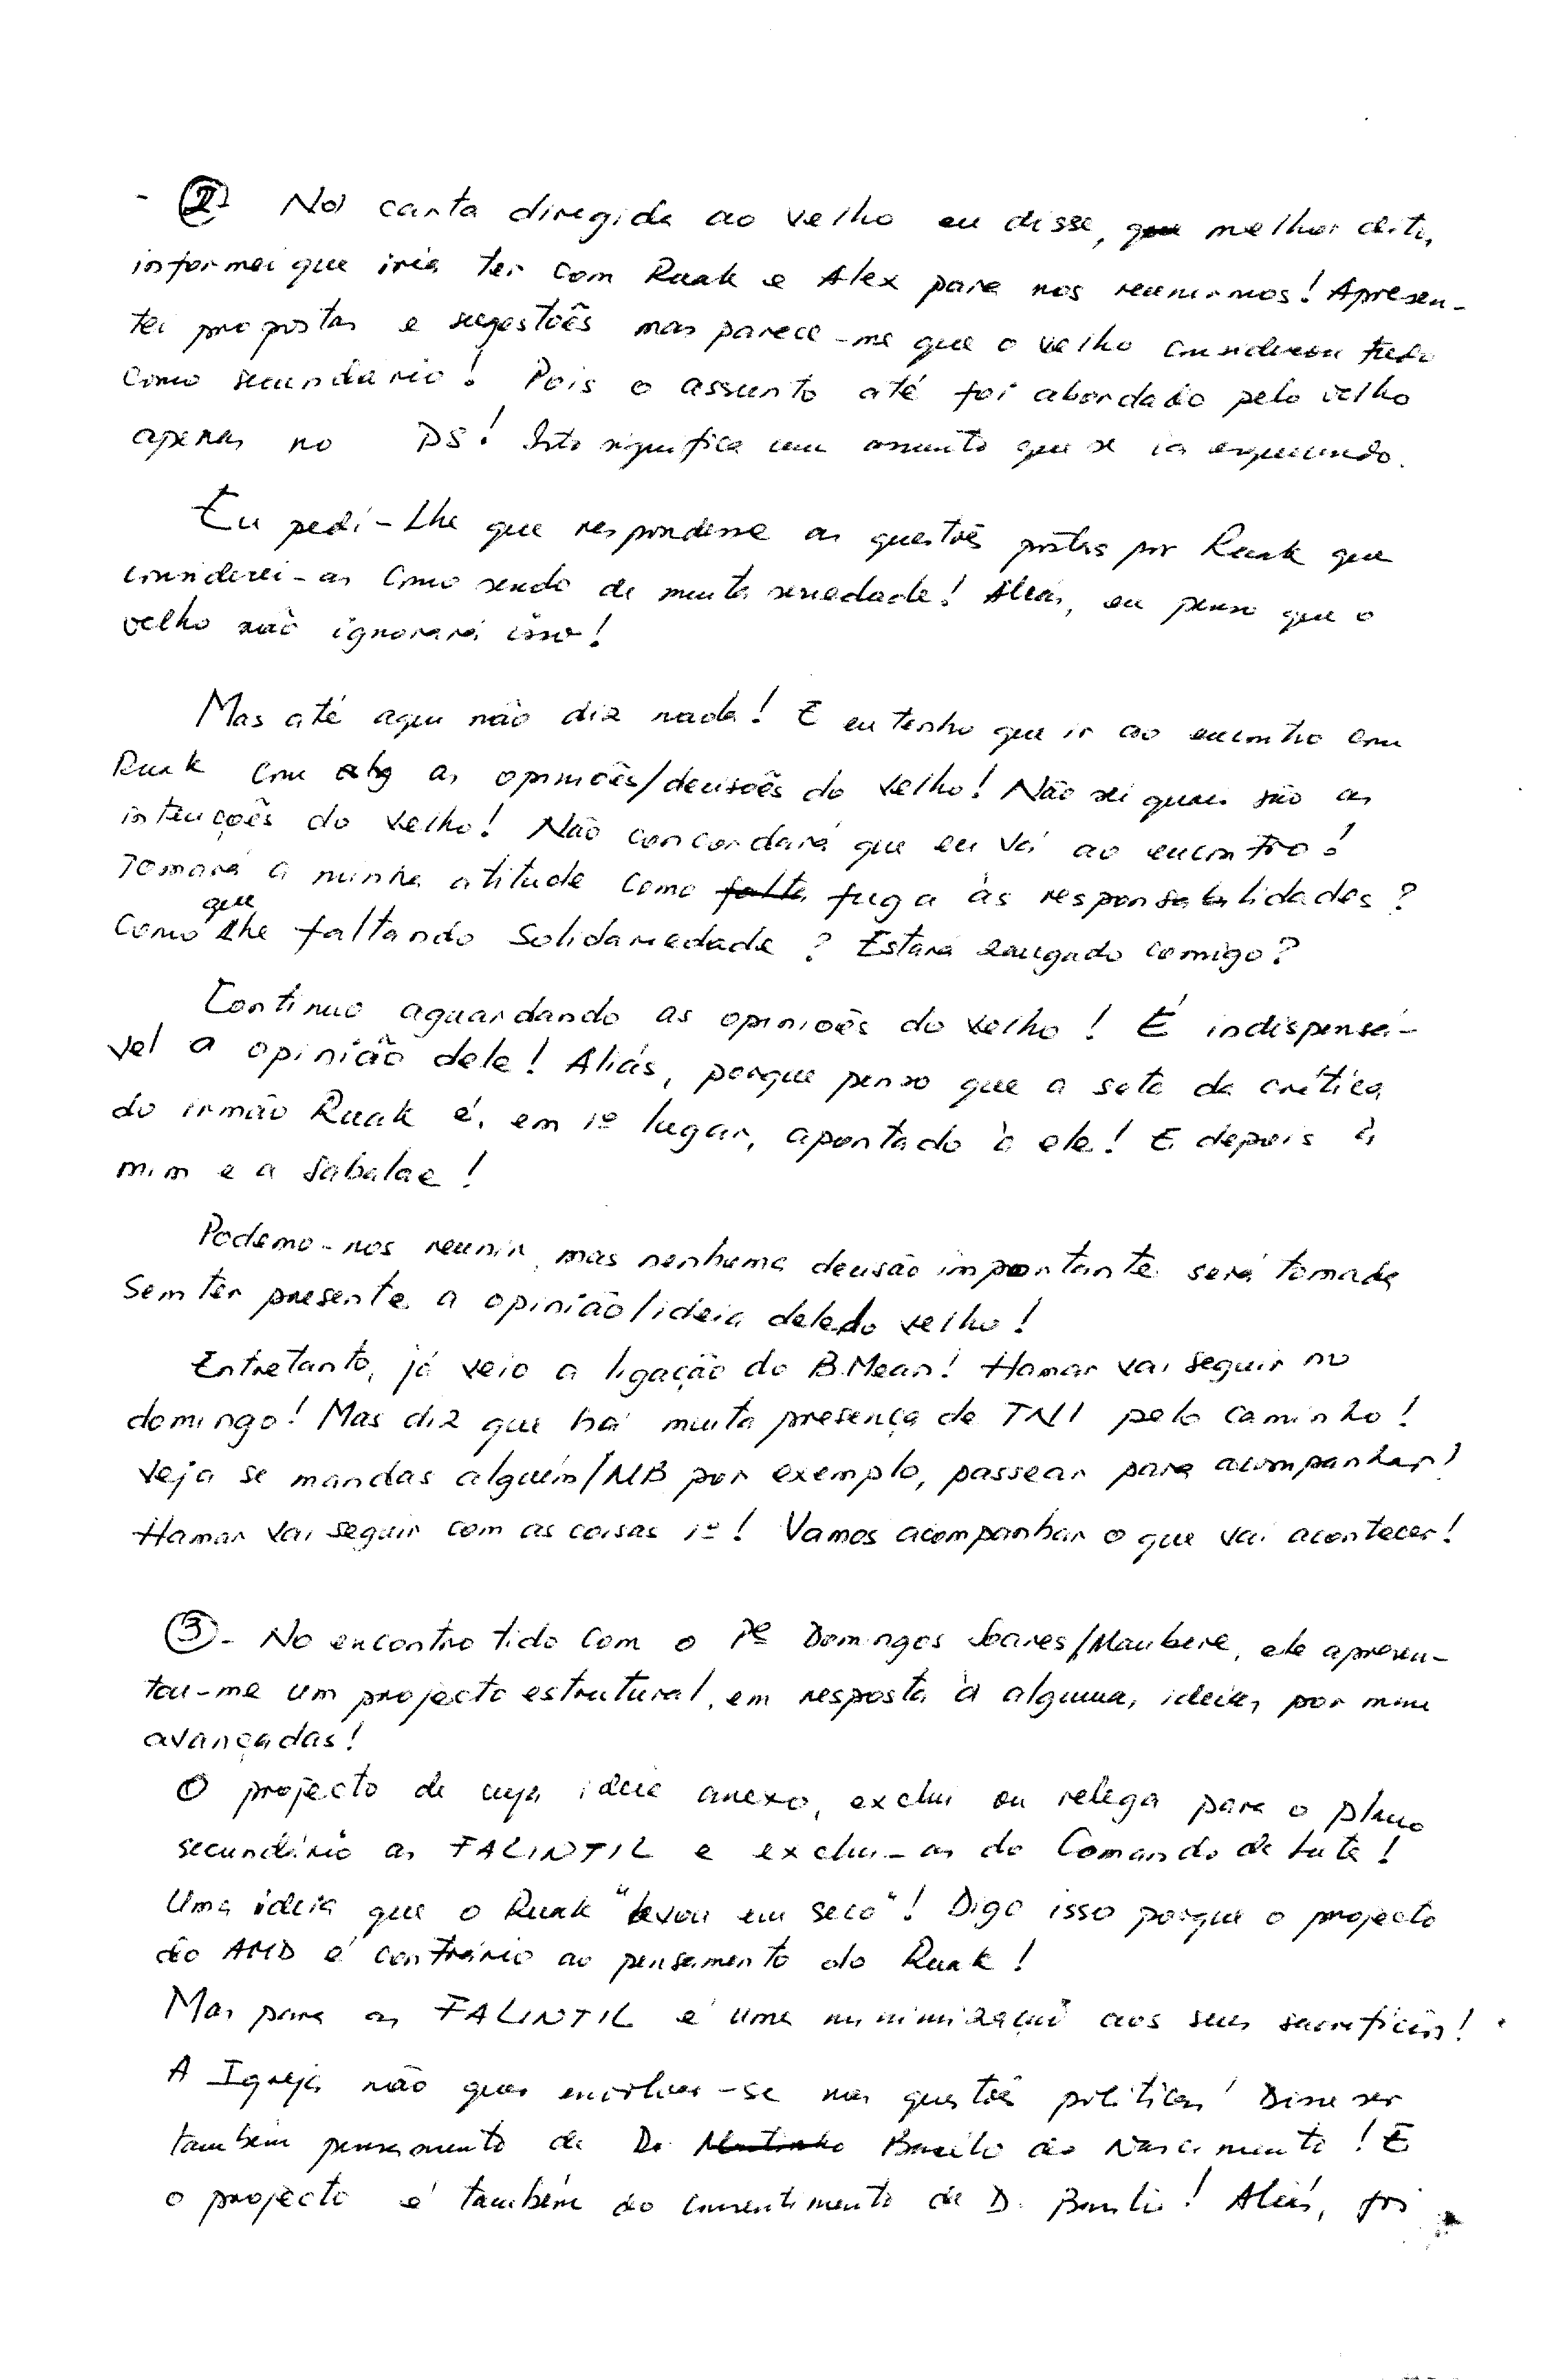 - ② Na carta diregida ao velho eu disse, que melhor dito,
informei que iria ter com Ruak e Alex para nos reunirmos! Apresen-
tei propostas e sugestoẽs mas parece-me que o velho considerou tudo
como secundário! Pois o assunto até foi abordado pelo velho
apenas no PS! Isto significa um assunto que se ia esquecendo.
Eu pedi-Lhe que respondesse as questoẽs postas por Ruak que
considerei-as como sendo de muita seriedade! Aliás, eu penso que o
velho não ignorará isso!
Mas até aqui não diz nada! E eu tenho que ir ao encontro com
Ruak com as opinioẽs/decisoẽs do velho! Não sei quais são as
intençoẽs do velho! Não concordará que eu vá ao encontro?
Tomará a minha atitude como falta fuga às responsabilidades?
Como que lhe faltando Solidariedade? Estará zangado comigo?
Continuo aguardando as opinioẽs do velho! É indispensá-
vel a opinião dele! Aliás, porque penso que a seta da crítica
do irmão Ruak é, em 1º lugar, apontado à ele! E depois à
mim e a Sabalae!
Podemo-nos reunir, mas nenhuma decisão importante será tomada
Sem ter presente a opinião/ideia dele/do velho!
Entretanto, já veio a ligação do B.Mean! Hamar vai seguir no
domingo! Mas diz que há muita presença de TNI pelo caminho!
Veja se mandas alguém/MB por exemplo, passear para acompanhar!
Hamar vai seguir com as coisas 1º! Vamos acompanhar o que vai acontecer!
③- No encontro tido com o Pe Domingos Soares/Maubere, ele apresen-
tou-me um projecto estrutural, em resposta à algumas ideias por mim
avançadas!
O projecto de cuja ideia anexo, exclui ou relega para o plano
secundário as FALINTIL e exclui-as do Comando da Luta!
Uma ideia que o Ruak "levou em seco"! Digo isso porque o projecto
do AMD é contrário ao pensamento do Ruak!
Mas para as FALINTIL é uma minimização aos seus sacrifícios!
A Igreja não quer envolver-se nas questoẽs políticas! Disse ser
também pensamento de D. Basílio do Nascimento! E
o projecto é também do consentimento de D. Basílio! Aliás, foi